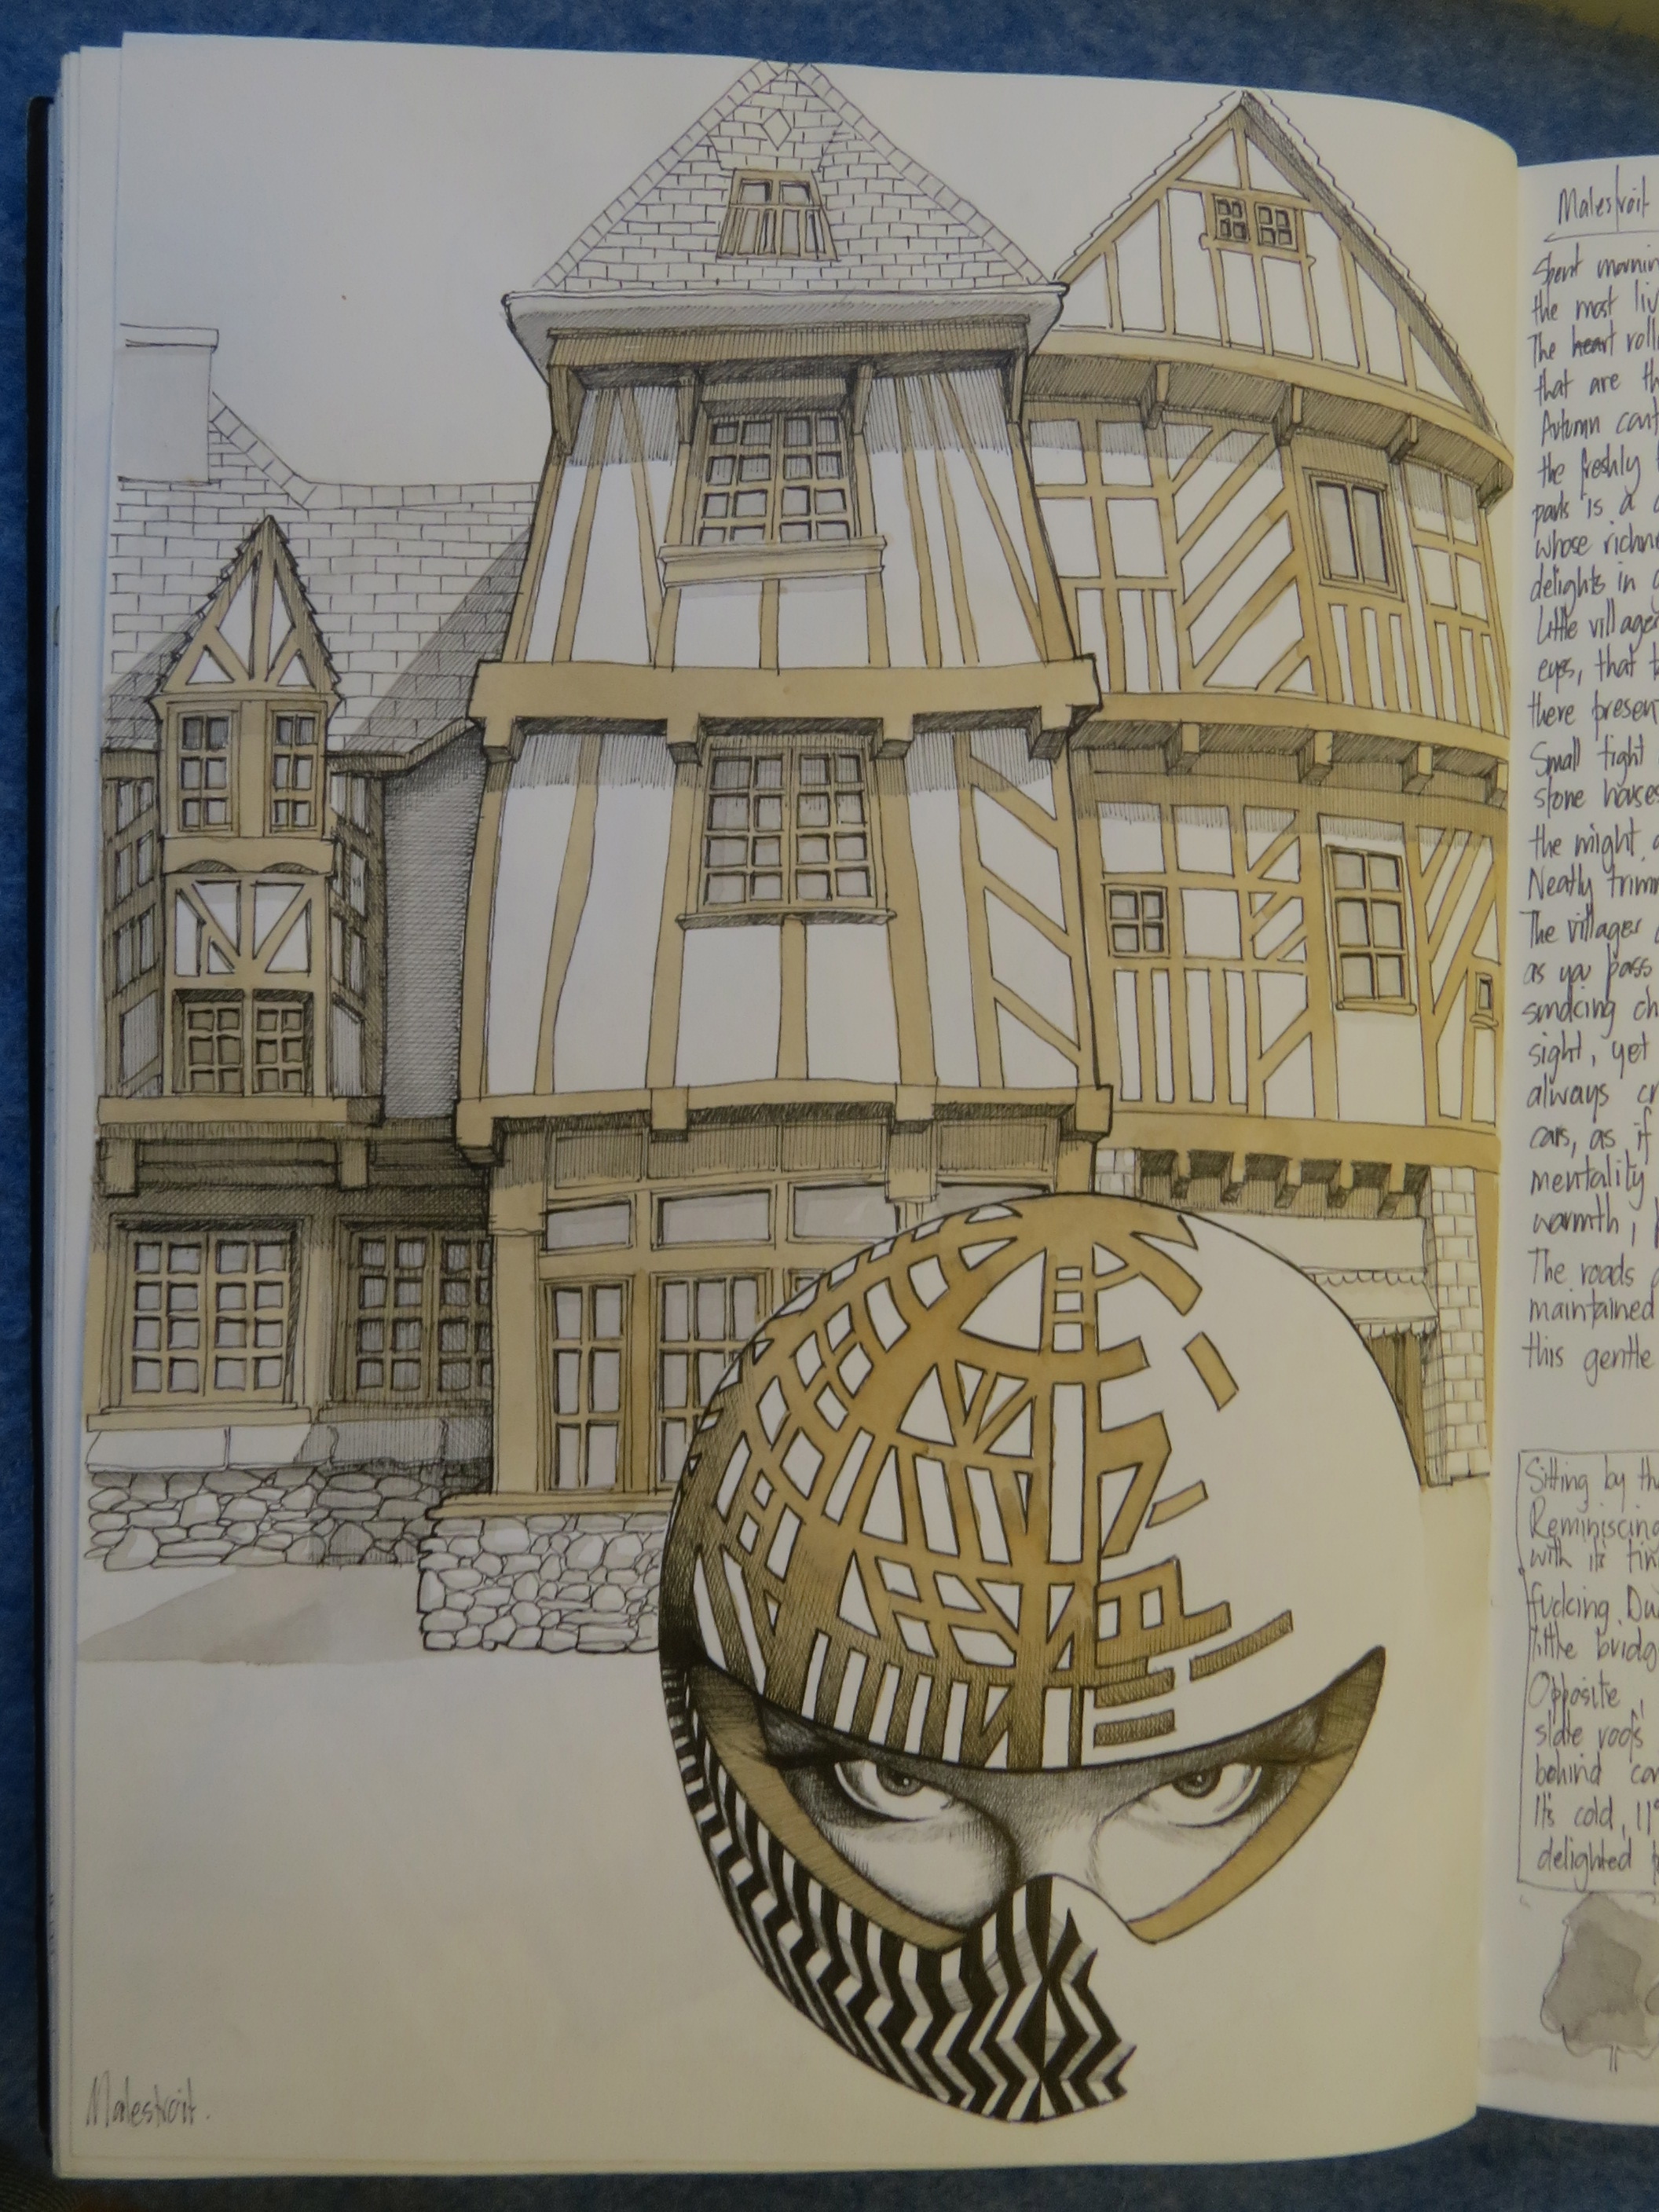 Malestroit.
Malestroit
Spent mornin
the most liv
The heart roll
that are th
Autumn cont
the freshly
park is a
whose richne
delights in
Little village
eyes, that t
there present
Small tight
stone houses
the might
Neatly trimm
The villager
as you pass
smoking ch
sight, yet
always cr
cars, as if
mentality
warmth,
The roads
maintained
this gentle
Sitting by th
Reminiscing
with its tin
fucking. Du
little bridg
Opposite,
slate roofs
behind
It's cold, 11°
delighted